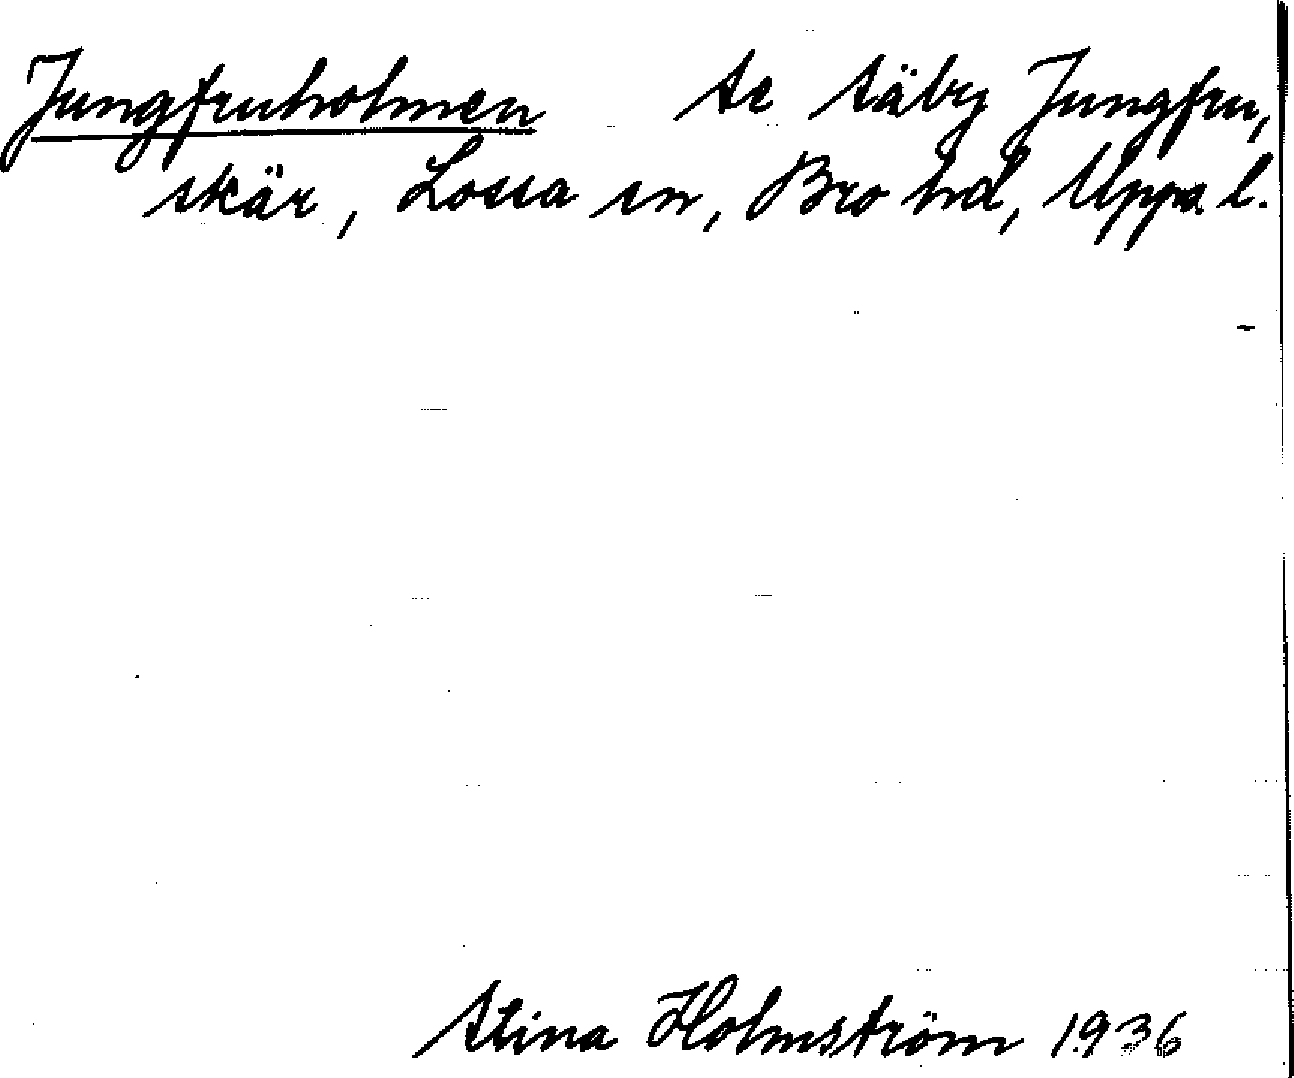 Jungfruholmen se Säby Jungfru,
skär, Lossa sn, Bro hd, Upps. l.
Stina Holmström 1936